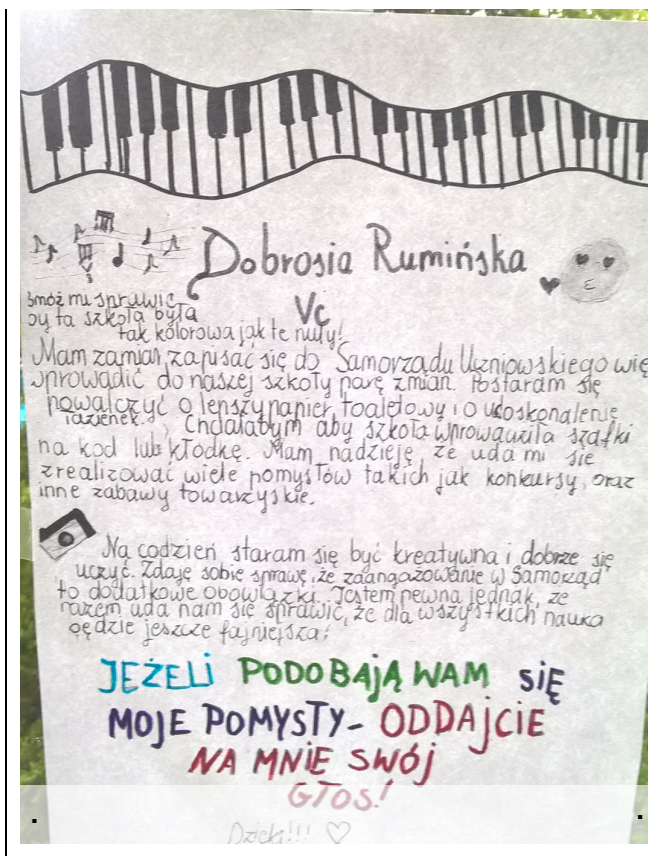 Dobrosia Rumińska
Vc
pomóż mi sprawić
by ta szkoła była
tak kolorowa jak te nuty!
Mam zamiar zapisać się do Samorządu Uczniowskiego więc
wprowadić do naszej szkoły parę zmian. Postaram się
powalczyć o lepszy papier toaletowy i o udoskonalenie
łazienek. Chciałabym aby szkoła wprowadziła szafki
na kod lub kłódkę. Mam nadzieję, że uda mi się
zrealizować wiele pomysłów takich jak konkursy, oraz
inne zabawy towarzyskie.
Na codzień staram się być kreatywna i dobrze się
uczyć. Zdaję sobie sprawę, że zaangażowanie w Samorząd
to dodatkowe obowiązki. Jestem pewna jednak, że
razem uda nam się sprawić, że dla wszystkich nauka
będzie jeszcze fajniejsza!
JEŻELI PODOBAJĄ WAM SIĘ
MOJE POMYSŁY- ODDAJCIE
NA MNIE SWÓJ
GŁOS!
Dzięki!!!